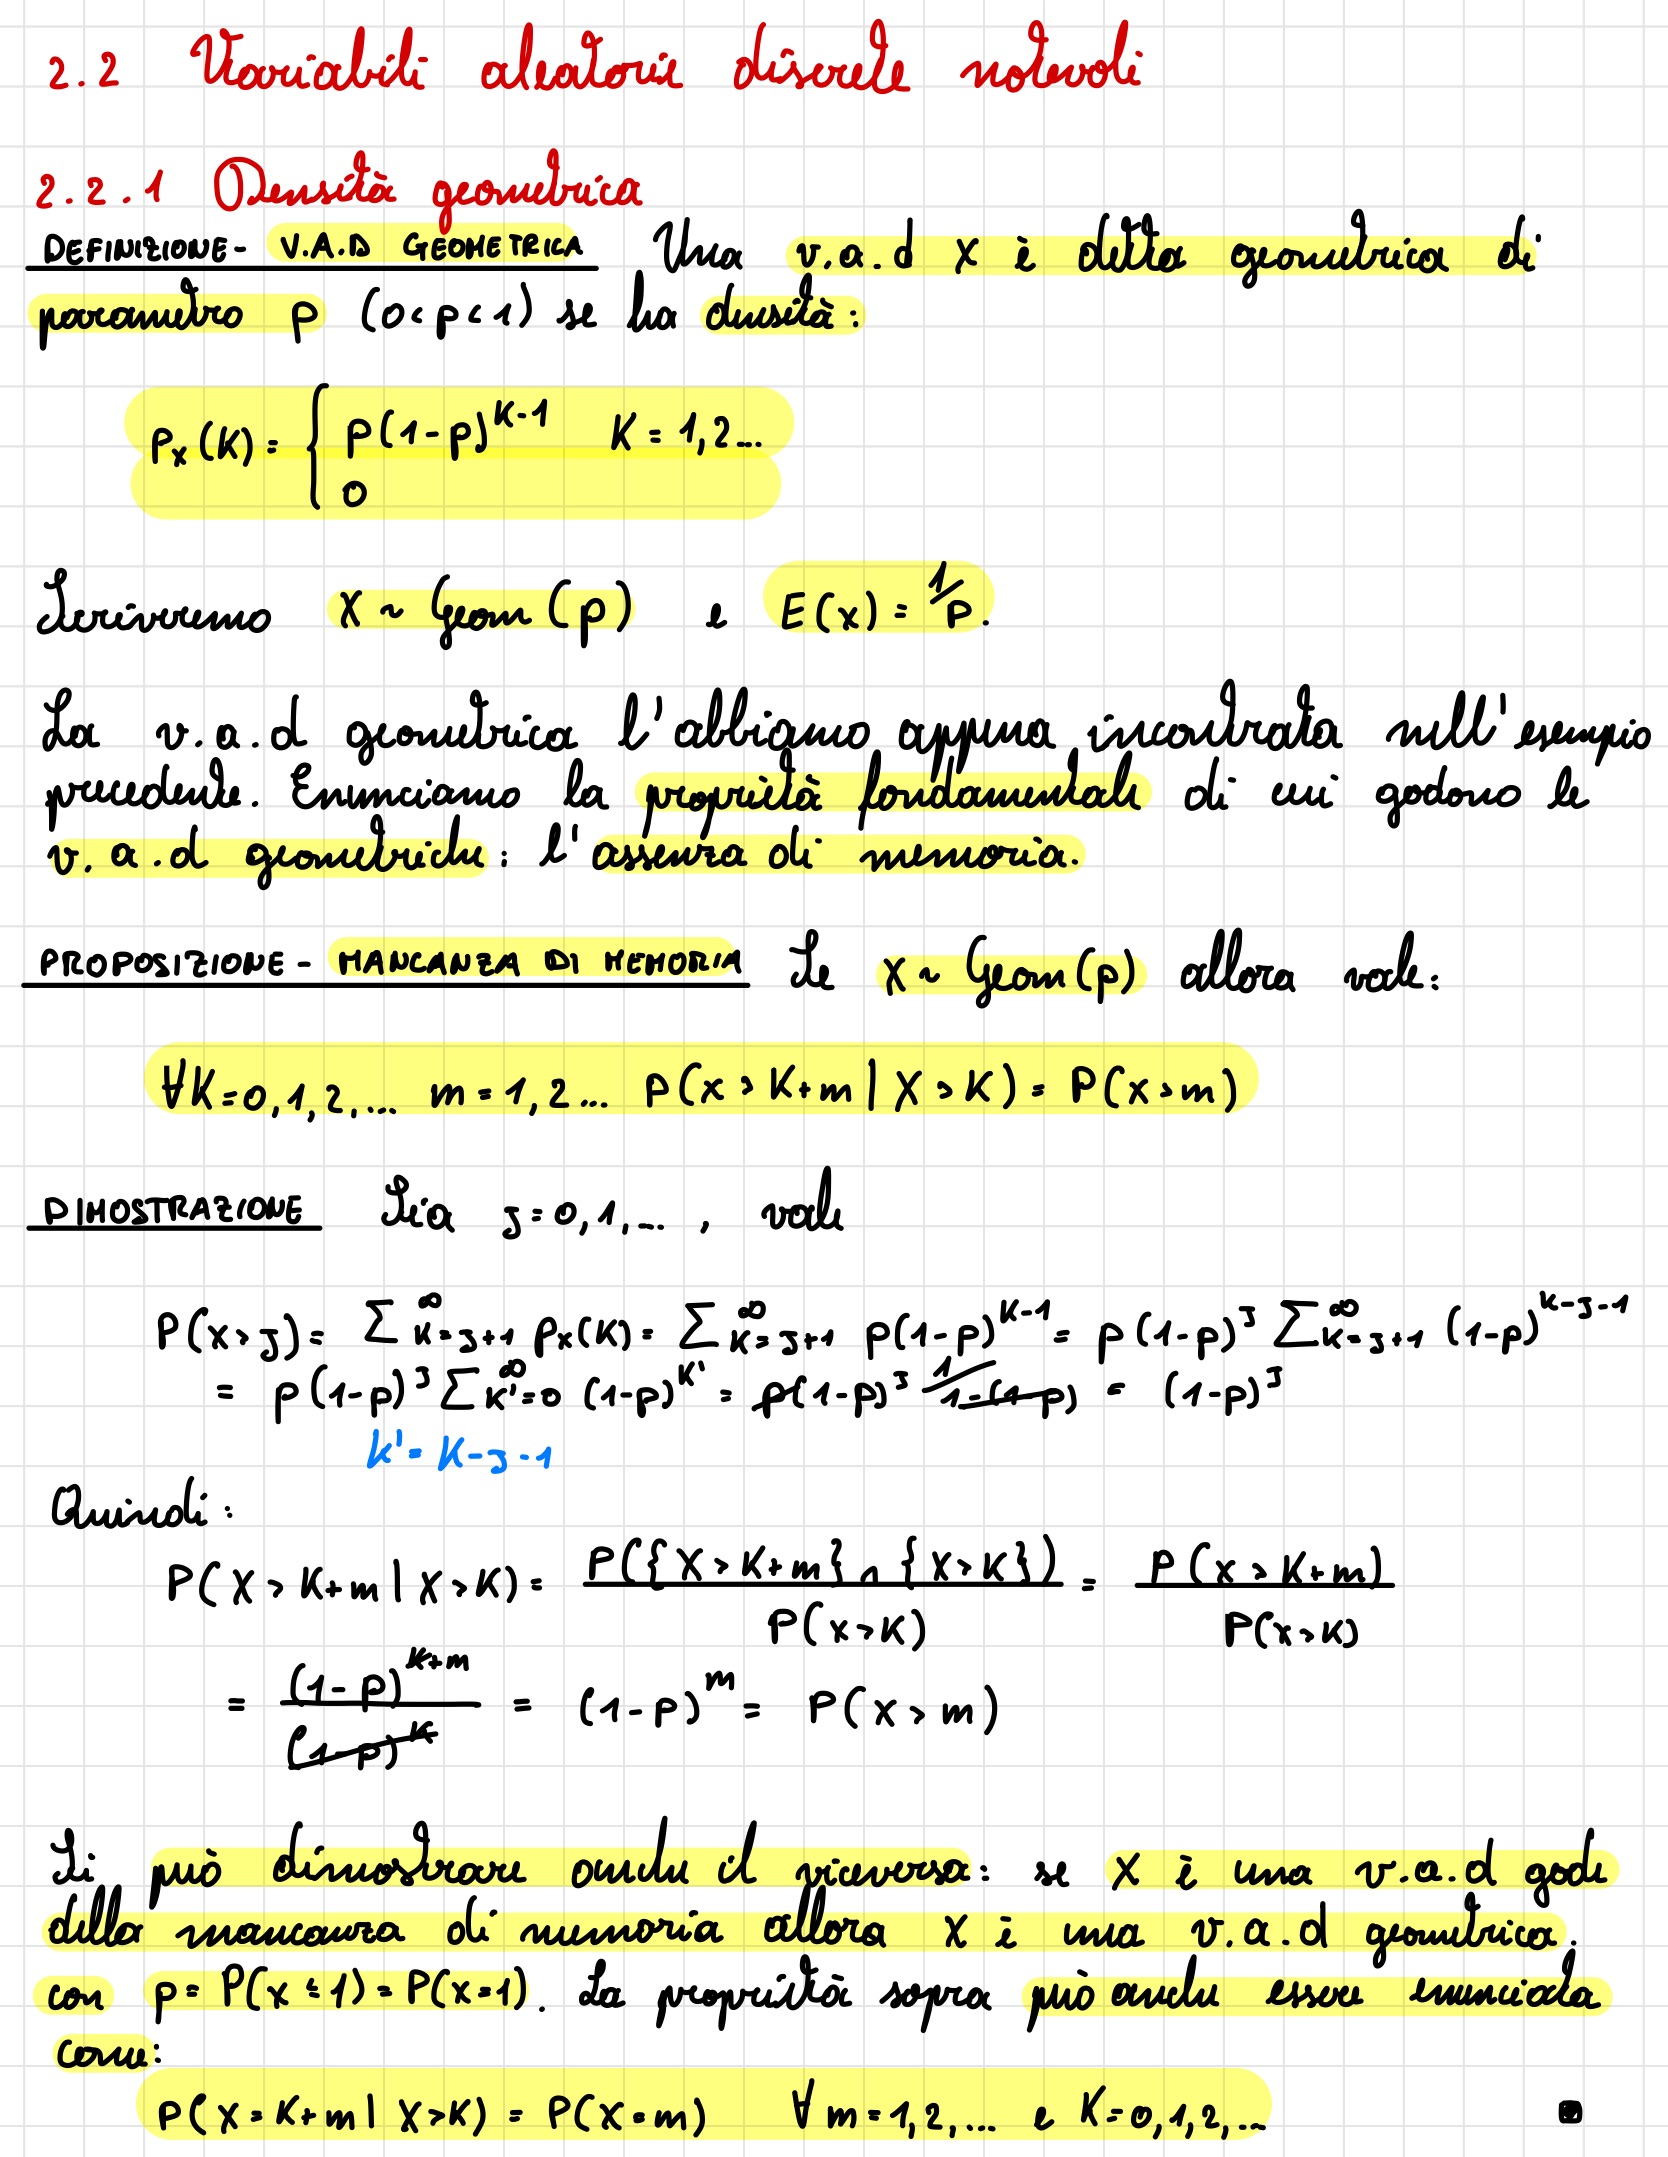 2.2 Variabili aleatorie discrete notevoli
2.2.1 Densità geometrica
DEFINIZIONE- V.A.D GEOMETRICA Una v.a.d X è detta geometrica di
parametro p (0<p<1) se ha densità:
Px(K) = { p(1-p)^{K-1} K = 1,2...
0
Scriveremo X ~ Geom(p) e E(x) = 1/p.
La v.a.d geometrica l'abbiamo appena incontrata nell'esempio
precedente. Enunciamo la proprietà fondamentale di cui godono le
v.a.d geometriche: l'assenza di memoria.
PROPOSIZIONE - MANCANZA DI MEMORIA Se X ~ Geom(p) allora vale:
∀K=0,1,2,... m=1,2... P(x>K+m | X>K) = P(x>m)
DIMOSTRAZIONE Sia J=0,1,... , vale
P(x>J) = ∑_{K=J+1}^∞ Px(K) = ∑_{K=J+1}^∞ p(1-p)^{K-1} = p(1-p)^J ∑_{K=J+1}^∞ (1-p)^{K-J-1}
= p(1-p)^J ∑_{K'=0}^∞ (1-p)^{K'} = p(1-p)^J 1/1-(1-p) = (1-p)^J
K' = K-J-1
Quindi:
P(X>K+m | X>K) = P({X>K+m} ∩ {X>K}) / P(x>K) = P(x>K+m) / P(x>K)
= (1-p)^{K+m} / (1-p)^K = (1-p)^m = P(x>m)
Si può dimostrare anche il viceversa: se X è una v.a.d gode
della mancanza di memoria allora X è una v.a.d geometrica.
con p = P(x≤1) = P(x=1). La proprietà sopra può anche essere enunciata
come:
P(X=K+m | X>K) = P(X=m) ∀ m=1,2,... e K=0,1,2,...